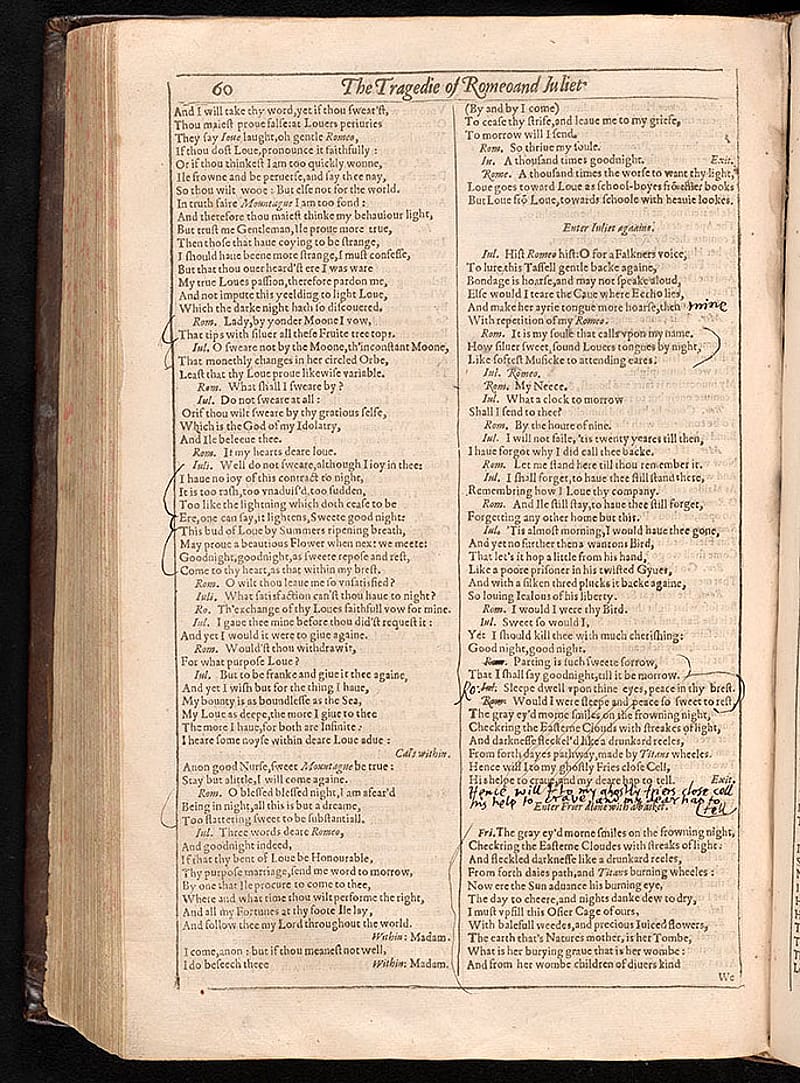 60
The Tragedie of Romeo and Juliet
And I will take thy word, yet if thou swear'st,
Thou maiest proue false: at Louers periuries
They say Ioue laught, oh gentle Romeo,
If thou dost Loue, pronounce it faithfully :
Or if thou thinkest I am too quickly wonne,
Ile frowne and be peruerse, and say thee nay,
So thou wilt wooe : But else not for the world.
In truth faire Mountague I am too fond :
And therefore thou maiest thinke my behauiour light,
But trust me Gentleman, Ile proue more true,
Then those that haue coying to be strange,
I should haue beene more strange, I must confesse,
But that thou ouer heard'st ere I was ware
My true Loues passion, therefore pardon me,
And not impute this yeelding to light Loue,
Which the darke night hath so discouered.
Rom. Lady, by yonder Moone I vow,
That tips with siluer all these Fruite tree tops.
Iul. O sweare not by the Moone, th'inconstant Moone,
That monethly changes in her circled Orbe,
Least that thy Loue proue likewise variable.
Rom. What shall I sweare by ?
Iul. Do not sweare at all :
Or if thou wilt sweare by thy gratious selfe,
Which is the God of my Idolatry,
And Ile beleeue thee.
Rom. If my hearts deare loue.
Iuli. Well do not sweare, although I ioy in thee:
I haue no ioy of this contract to night,
It is too rash, too vnaduis'd, too sudden,
Too like the lightning which doth cease to be
Ere, one can say, it lightens, Sweete good night:
This bud of Loue by Summers ripening breath,
May proue a beautious Flower when next we meete:
Goodnight, goodnight, as sweete repose and rest,
Come to thy heart, as that within my brest.
Rom. O wilt thou leaue me so vnsatisfied ?
Iuli. What satisfaction can'st thou haue to night?
Ro. Th'exchange of thy Loues faithfull vow for mine.
Iul. I gaue thee mine before thou did'st request it :
And yet I would it were to giue againe.
Rom. Would'st thou withdraw it,
For what purpose Loue ?
Iul. But to be franke and giue it thee againe,
And yet I wish but for the thing I haue,
My bounty is as boundlesse as the Sea,
My Loue as deepe, the more I giue to thee
The more I haue, for both are Infinite :
I heare some noyse within deare Loue adue :
Cals within.
Anon good Nurse, sweet Mountague be true :
Stay but a little, I will come againe.
Rom. O blessed blessed night, I am afear'd
Being in night, all this is but a dreame,
Too flattering sweet to be substantiall.
Iul. Three words deare Romeo,
And goodnight indeed,
If that thy bent of Loue be Honourable,
Thy purpose marriage, send me word to morrow,
By one that Ile procure to come to thee,
Where and what time thou wilt performe the right,
And all my Fortunes at thy foote Ile lay,
And follow thee my Lord throughout the world.
Within: Madam.
I come, anon : but if thou meanest not well,
I do beseech theee Within: Madam.
(By and by I come)
To cease thy strife, and leaue me to my griefe,
To morrow will I send.
Rom. So thriue my soule.
Iu. A thousand times goodnight. Exit.
Rome. A thousand times the worse to want thy light,
Loue goes toward Loue as school-boyes frō thier books
But Loue frō Loue, towards schoole with heauie lookes.
Enter Iuliet againe.
Iul. Hist Romeo hist: O for a Falkners voice,
To lure this Tassell gentle backe againe,
Bondage is hoarse, and may not speake aloud,
Else would I teare the Caue where Eccho lies,
And make her ayrie tongue more hoarse, then mine
With repetition of my Romeo.
Rom. It is my soule that calls vpon my name.
How siluer sweet, sound Louers tongues by night,
Like softest Musicke to attending eares.
Iul. Romeo.
Rom. My Neece.
Iul. What a clock to morrow
Shall I send to thee?
Rom. By the houre of nine.
Iul. I will not faile, 'tis twenty yeares till then,
I haue forgot why I did call thee backe.
Rom. Let me stand here till thou remember it.
Iul. I shall forget, to haue thee still stand there,
Remembring how I Loue thy company.
Rom. And Ile still stay, to haue thee still forget,
Forgetting any other home but this.
Iul. 'Tis almost morning, I would haue thee gone,
And yet no further then a wantons Bird,
That let's it hop a little from his hand,
Like a poore prisoner in his twisted Gyues,
And with a silken thred plucks it backe againe,
So louing Iealous of his liberty.
Rom. I would I were thy Bird.
Iul. Sweet so would I,
Yet I should kill thee with much cherishing:
Good night, good night.
Rom. Parting is such sweete sorrow,
That I shall say goodnight, till it be morrow.
Ro. Iul. Sleepe dwell vpon thine eyes, peace in thy brest.
Rom. Would I were sleepe and peace so sweet to rest,
The gray ey'd morne smiles on the frowning night,
Checkring the Easterne Clouds with streakes of light,
And darknesse fleckel'd like a drunkard reeles,
From forth dayes pathway, made by Titans wheeles.
Hence will I to my ghostly Fries close Cell,
His helpe to craue, and my deare hap to tell. Exit.
Hence will I to my ghostly friers close cell
his help to crave, and my dear hap to
tell
Enter Frier alone with a basket.
Fri. The gray ey'd morne smiles on the frowning night,
Checkring the Easterne Cloudes with streaks of light:
And fleckled darknesse like a drunkard reeles,
From forth daies path, and Titans burning wheeles :
Now ere the Sun aduance his burning eye,
The day to cheere, and nights danke dew to dry,
I must vpfill this Osier Cage of ours,
With balefull weedes, and precious Iuiced flowers,
The earth that's Natures mother, is her Tombe,
What is her burying graue that is her wombe :
And from her wombe children of diuers kind
We